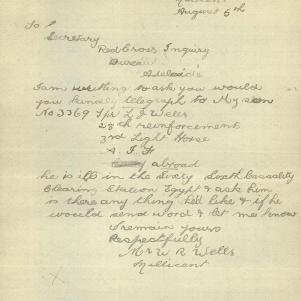 Millicent
August 6th
To
Secretary
Red Cross Inquiry
Bureau
Adelaide
I am writting to ask you would
you kindly telegraph to My son
No 3369 Tpr L J Wells
28th reinforcement
3rd Light Horse
A. I. F
abroad
he is ill in the Sixty Sixth Casualty
Clearing Station Egypt & ask him
is there any thing he'd like & if he
would send word & let me know
I remain yours
Respectfully
Mr W R Wells
Millicent